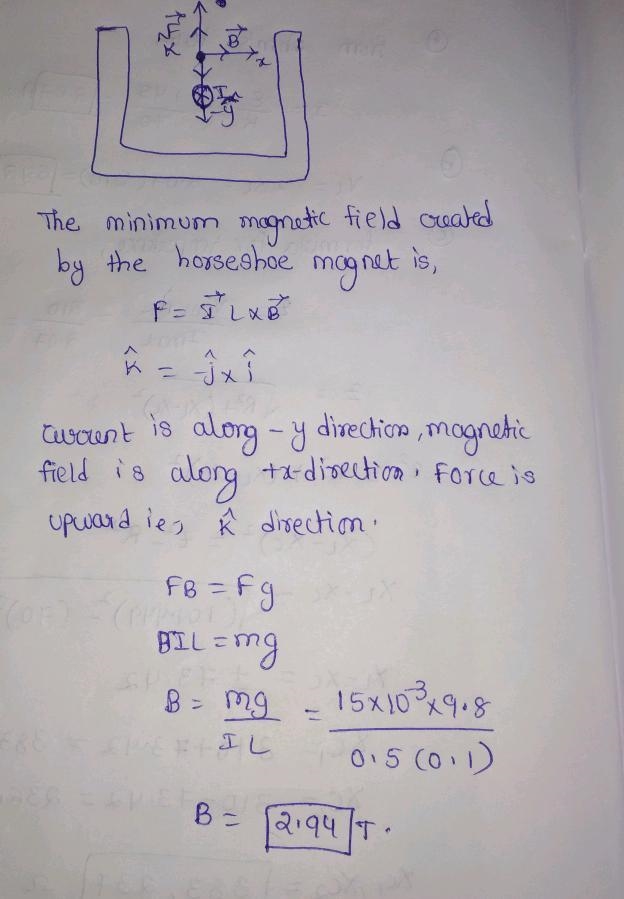 B⃗
x
I
-ŷ
The minimum magnetic field created
by the horseshoe magnet is,
F = I⃗ L x B⃗
k̂ = -ĵ x î
current is along - y direction, magnetic
field is along +x-direction. Force is
upward ie, k̂ direction.
FB = Fg
BIL = mg
B = mg / IL = 15x10⁻³x9.8 / 0.5 (0.1)
B = 2.94 T.